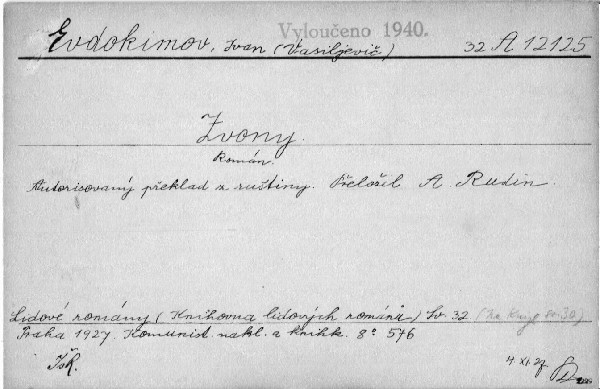 Vyloučeno 1940.
Evdokimov, Ivan (Vasiljevič) 32 A 12125
Zvony.
Román.
Autorisovaný překlad z ruštiny. Přeložil A. Rudin.
Lidové romány (Knihovna lidových románů) Sv. 32
Praha 1927. Komunist. nakl. a knihk. 8° 576
4 XI. 27